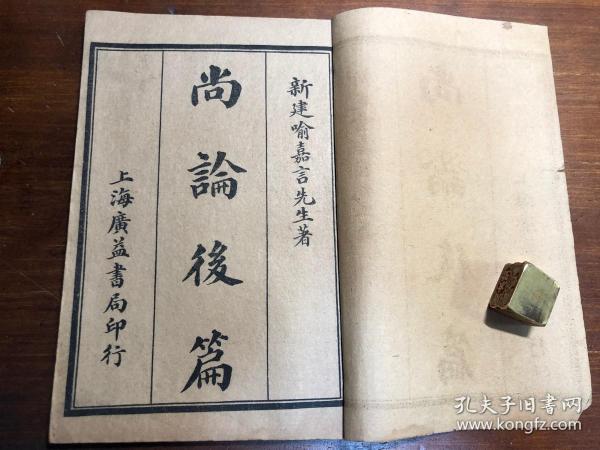 新建喻嘉言先生著
尚論後篇
上海廣益書局印行
孔夫子旧书网
www.kongfz.com